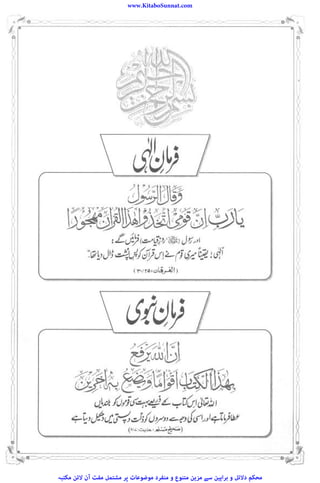 www.KitaboSunnat.com
بسم الله الرحمن الرحيم
فرمانِ الٰہی
وَقَالَ الرَّسُولُ
يَارَبِّ اِنَّ قَوْمِي اتَّخَذُوا هٰذَا القُرْآنَ مَهْجُورًا
اور رسول (ﷺ) (روزِ قیامت) فرمائیں گے:
الٰہی! یقیناً میری قوم نے اس قرآن کو پس پشت ڈال دیا تھا"
(الفرقان-۳۰/۲۵)
فرمانِ نبوی
اِنَّ اللهَ يَرْفَعُ
بِهٰذَا الْكِتَابِ اَقْوَامًا وَّيَضَعُ بِهٖ اٰخَرِيْنَ
اللہ تعالیٰ اس کتاب کے ذریعے بہت سی قوموں کو بلندیاں
عطا فرماتا ہے اور اسی کی وجہ سے دوسروں کو ذلت و پستی میں دھکیل دیتا ہے
(صحیح مسلم: حدیث:
محکم دلائل و براہین سے مزین متنوع و منفرد موضوعات پر مشتمل مفت آن لائن مکتبہ